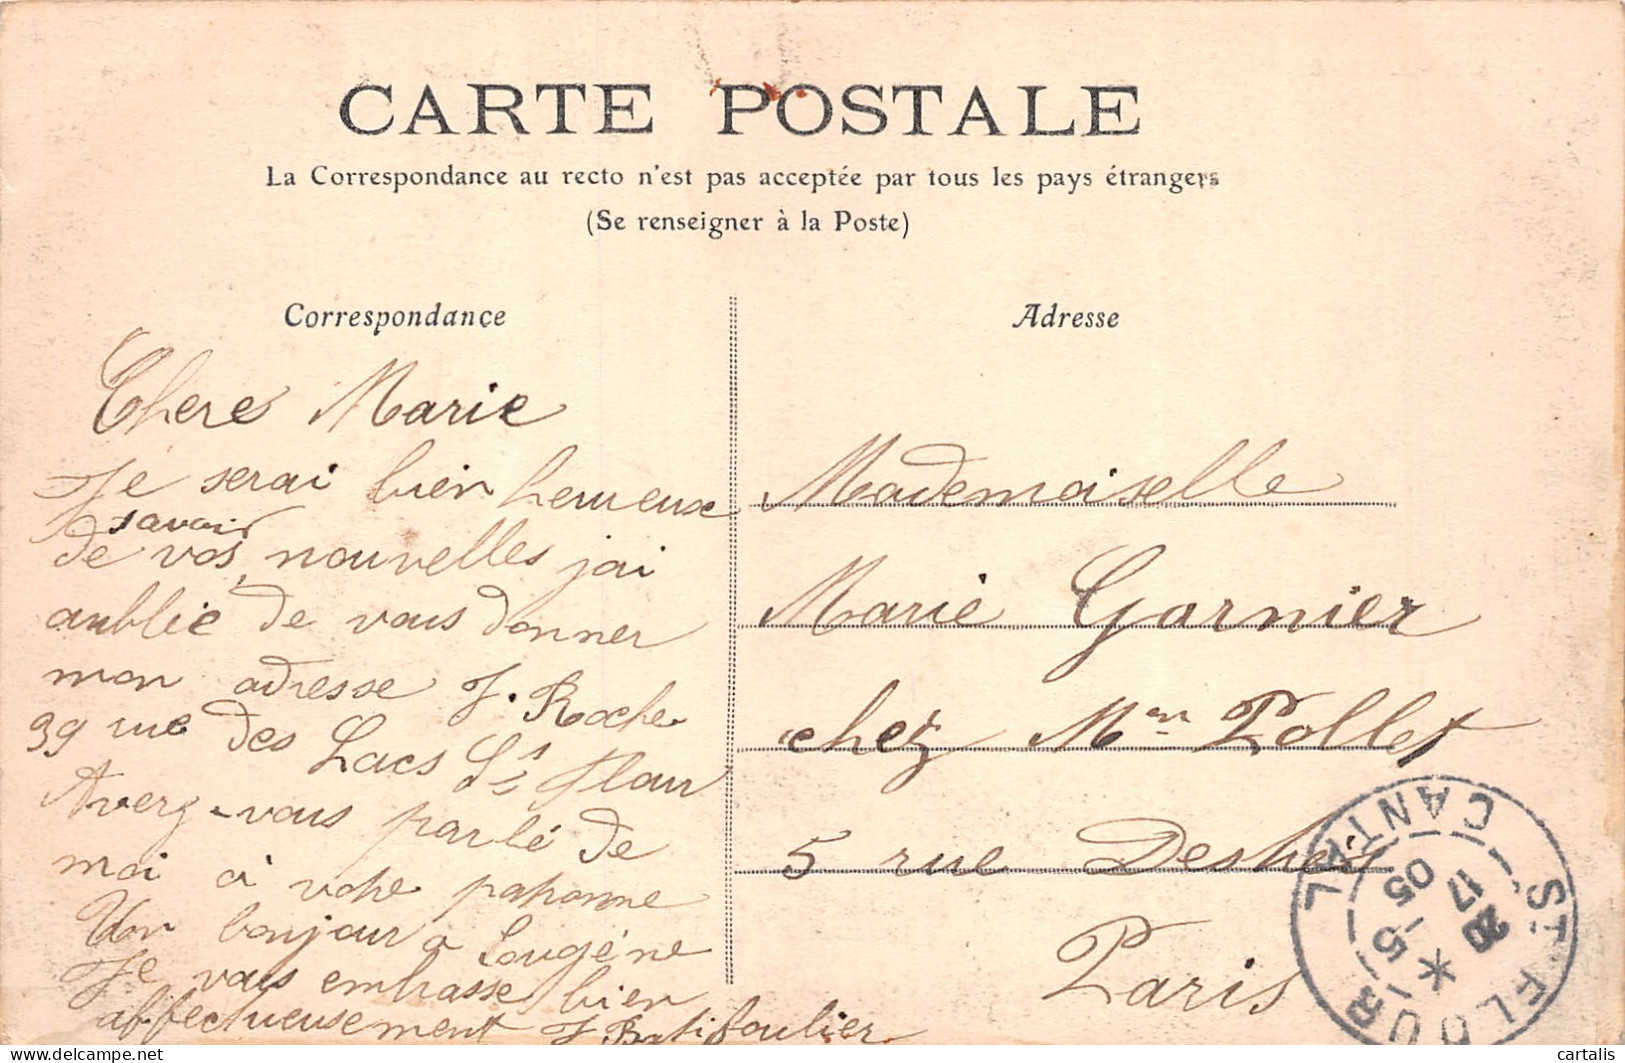 CARTE POSTALE
La Correspondance au recto n'est pas acceptée par tous les pays étrangers
(Se renseigner à la Poste)
Correspondance
Cheres Marie
Je serai bien heureuse
savoir
de vos nouvelles jai
aublie de vous donner
mon adresse J. Roche
39 rue des Lacs St flour
Averz-vous parlé de
moi à votre patronne
Un bonjour a Eougéne
Je vous embrasse bien
affectueusement J Batifoulier
Adresse
Mademoiselle
Marie Garnier
chez Mme Pollet
5 rue
Paris
ST FLOUR
CANTAL
20
17 -5
05
delcampe.net
cartalis